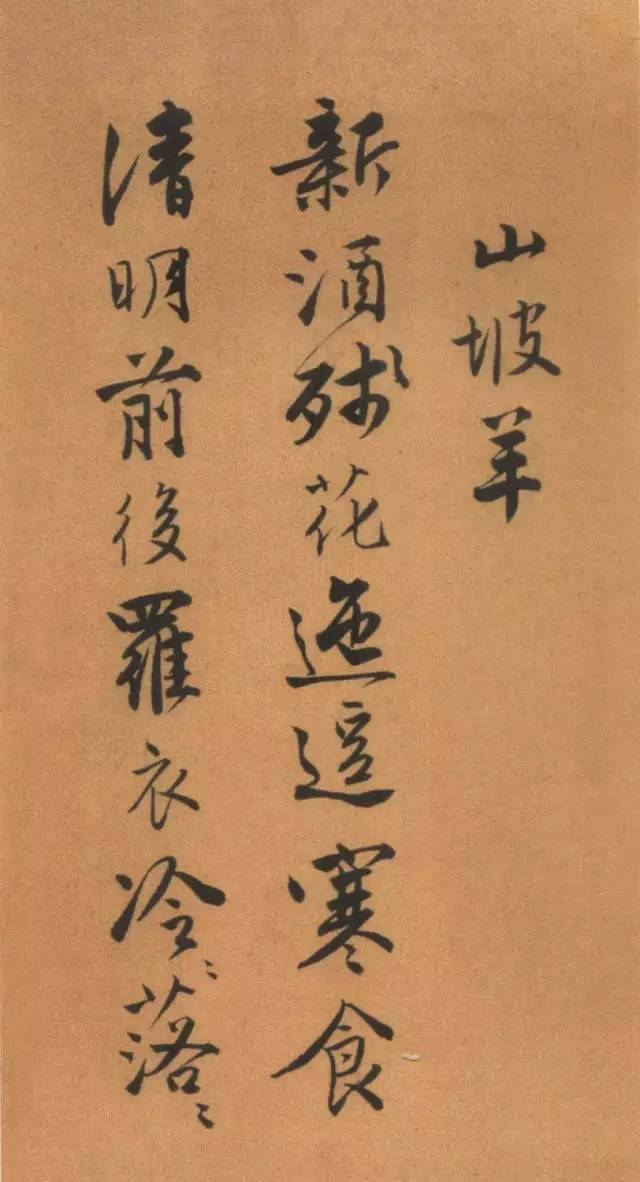 山坡羊
新酒殘花迤逗寒食
清明前後羅衣冷〻落〻